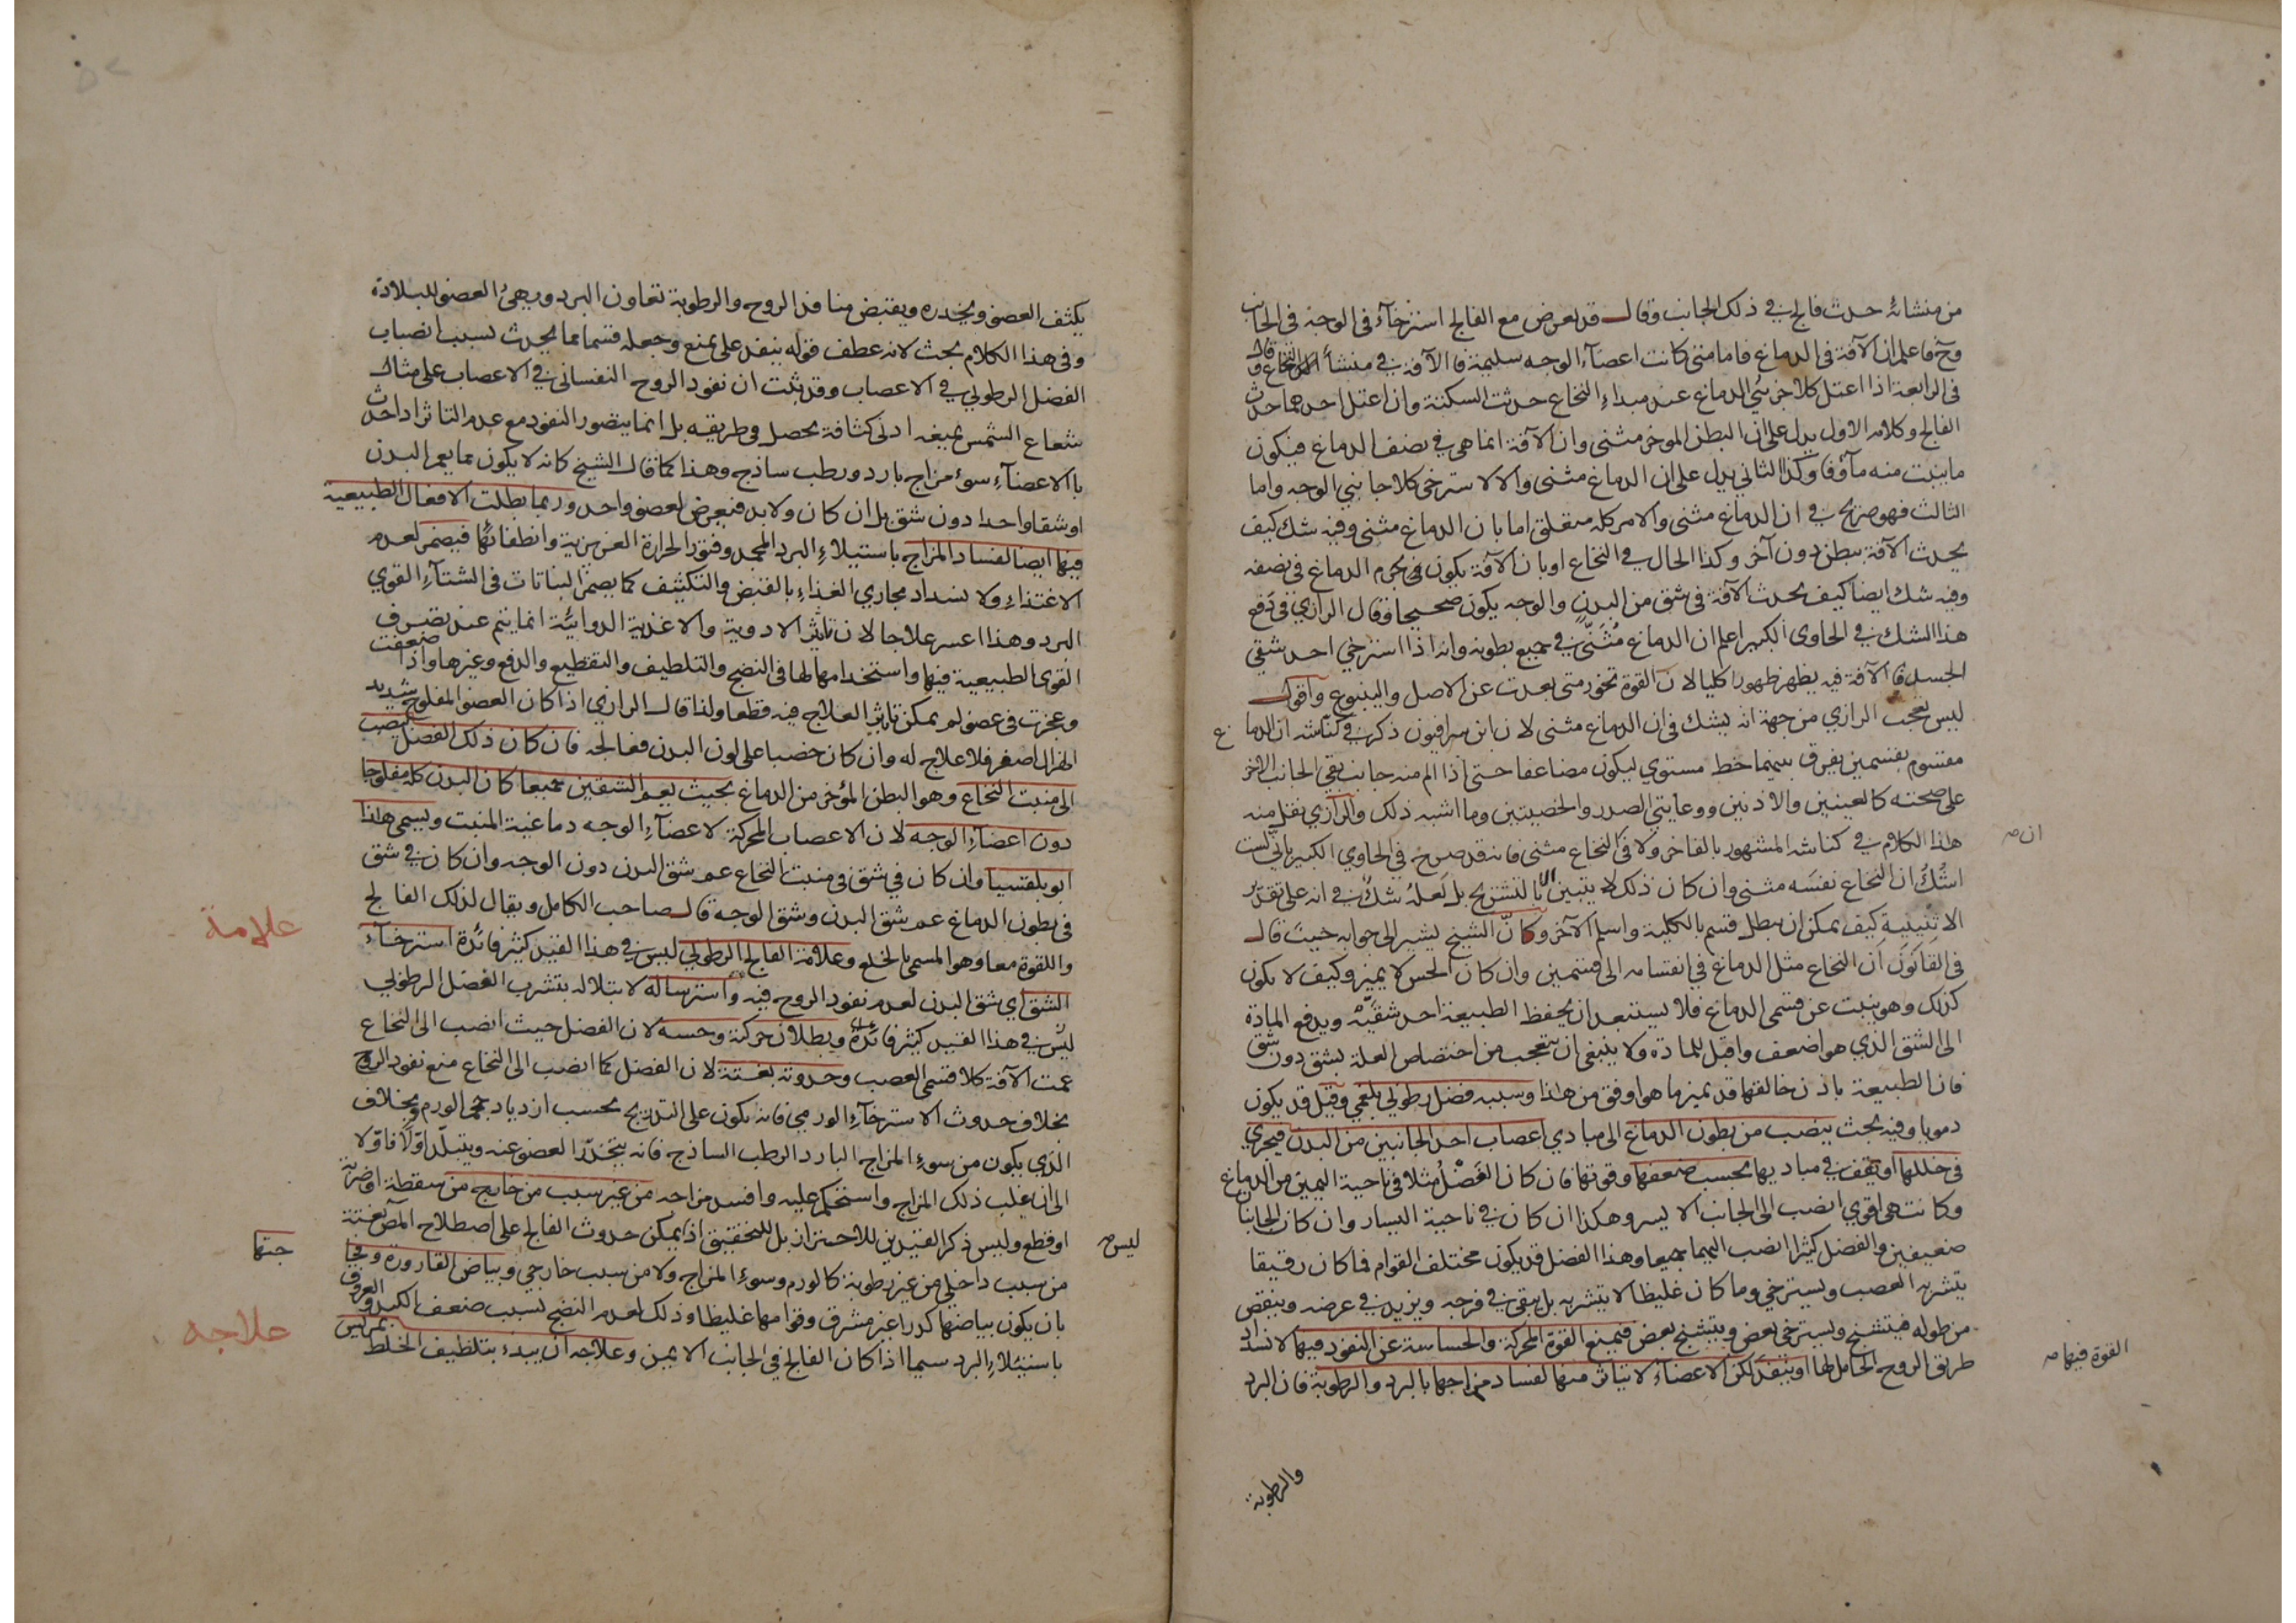 من منشائه حدث فالج في ذلك الجانب وقال قد يعرض مع الفالج استرخآء في الوجه في الجانب
وح فاعلم ان الآفة في الدماغ فاما متى كانت اعضآء الوجه سليمة فالآفة في منشأ النخاع وقال
في الرابعة اذا اعتل كلا جزئي الدماغ عند مبداء النخاع حدثت السكتة وان اعتل احدهما حدث
الفالج وكلامه الاول يدل على ان البطن الموخر مثنى وان الآفة انما هي في نصف الدماغ فيكون
ما ينبت منه مآؤفا وكذا الثاني يدل على ان الدماغ مثنى والا لاسترخى كلا جانبي الوجه واما
الثالث فهو صريح في ان الدماغ مثنى والامر كله متعلق اما بان الدماغ مثنى وفيه شك كيف
يحدث الآفة ببطن دون آخر وكذا الحال في النخاع او بان الآفة يكون في جرم الدماغ في نصفه
وفيه شك ايضا كيف يحدث الآفة في شق من البدن والوجه يكون صحيحا وقال الرازي في دفع
هذا الشك في الحاوى الكبير اعلم ان الدماغ مُثَنّى في جميع بطونه وانه اذا استرخي احد شقي
الجسد فالآفة فيه يظهر ظهورا كليا لان القوة تخور متى بعدت عن الاصل والينبوع واقول
ليس تعجب الرازي من جهة انه يشك في ان الدماغ مثنى لان ابن سرافيون ذكر في كناشه ان الدماغ
مقسوم بقسمين يفرق بينهما خط مستوي ليكون مضاعفا حتى اذا الم منه جانب بقي الجانب الآخر
على صحته كالعينين والاذنين ووعايتي الصدر والخصيتين وما اشبه ذلك والرازي نقل منه
هذا الكلام في كناشه المشهور بالفاخر ولا في النخاع مثنى فانه قد صرح في الحاوي الكبير باني لست
ان صـ
اشُكُ ان النخاع نفسَه مثنى وان كان ذلك لا يتبين الا بالتشريح بل لَعله شك في انه على تقدير
الاثنينية كيف يمكن ان يبطل قسم بالكلية واسلم الآخر وكانّ الشيخ يشير الى جوابه حيث قال
في القانون ان النخاع مثل الدماغ في انقسامه الى قسمين وان كان الحس لا يميز وكيف لا يكون
كذلك وهو ينبت عن قسمى الدماغ فلا يستبعد ان يحفظ الطبيعة احد شقيّه ويدفع المادة
الى الشق الذي هو اضعف واقبل للمادة ولا ينبغي ان يتعجب من اختصاص العلة بشق دون شق
فان الطبيعة باذن خالقها قد يميز ما هو اوفق من هذا وسببه فضل رطوبي بلغمي وقيل قد يكون
دمويا وفيه بحث ينصب من بطون الدماغ الى مبادي اعصاب احد الجانبين من البدن فيجري
في خللها او يقف في مباديها بحسب ضعفها وقوتها فان كان الفَضْلُ مثلا في ناحية اليمين من الدماغ
وكانت هي اقوي انصب الى الجانب الايسر وهكذا ان كان في ناحية اليسار وان كان الجانبان
ضعيفين والفضل كثيرا انصب اليهما جميعا وهذا الفضل قد يكون مختلف القوام فما كان رقيقا
يتشربه العصب ويسترخي وما كان غليظا لا يتشربه بل يبقى في فرجه ويزيد في عرضه وينقص
من طوله فيتشنج ويسترخي بعض ويتشنج بعض فيمنع القوة المحركة والحساسة عن النفوذ فيها لانسداد
طريق الروح الحامل لها او ينفذ لكن الاعضاء لا يتاثر منها لفساد مزاجها بالبرد والرطوبة فان البرد
القوة فيها صـ
والرطوبة
يكثف العضو ويخدره ويقبض منافذ الروح والرطوبة تعاون البرد ويهئ العضو للبلادة
وفي هذا الكلام بحث لانه عطف قوله ينفذ على يمنع وجعله قسما مما يحدث بسبب انصباب
الفضل الرطوبي في الاعصاب وقد ثبت ان نفوذ الروح النفساني في الاعصاب على مثال
شعاع الشمس يمنعه ادنى كثافة يحصل في طريقه بل انما يتصور النفوذ مع عدم التاثر اذا حدث
بالاعضآء سوء مزاج بارد ورطب ساذج وهذا كما قال الشيخ كانه لا يكون مما يعم البدن
او شقا واحدا دون شق بل ان كان ولا بد فيعرض لعضو واحد وربما بطلت الافعال الطبيعية
فيها ايضا لفساد المزاج باستيلاء البرد المجمد وفتور الحرارة الغريزية وانطفائها فيضمر لعدم
الاغتذاء ولانسداد مجاري الغذاء بالقبض والتكثيف كما يضمر النباتات في الشتآء القوي
البرد وهذا اعسر علاجا لان تاثير الادوية والاغذية الدوائية انما يتم عند تصرف
القوى الطبيعية فيها واستخدامها لها في النضج والتلطيف والتقطيع والدفع وغيرها واذا ضعفت
وعجزت في عضو لم يمكن تاثير العلاج فيه قطعا ولذا قال الرازي اذا كان العضو المفلوج شديد
الهزال اصفر فلا علاج له وان كان خصبا على لون البدن فعالجه فان كان ذلك الفضل ينصب
الى منبت النخاع وهو البطن المؤخر من الدماغ بحيث يعم الشقين جميعا كان البدن كله مفلوجا
دون اعضآء الوجه لان الاعصاب المحركة لاعضآء الوجه دماغية المنبت ويسمى هذا
ابوبلقسيا وان كان في شق في منبت النخاع عم شق البدن دون الوجه وان كان في شق
في بطون الدماغ عم شق البدن وشق الوجه قال صاحب الكامل ويقال لذلك الفالج
واللقوة معا وهو المسمى بالخلع وعلامة الفالج الرطوبي ليس في هذا القيد كثير فائدة استرخآء
علامة
الشق اي شق البدن لعدم نفوذ الروح فيه واسترساله لابتلاله بتشرب الفضل الرطوبي
ليس في هذا القيد كثير فائدة وبطلان حركته وحسه لان الفضل حيث انصب الى النخاع
عمت الآفة كلا قسمي العصب وحدوثه بغتة لان الفضل كما انصب الى النخاع منع نفوذ الروح
بخلاف حدوث الاسترخآء الورمي فانه يكون على التدريج بحسب ازدياد حجم الورم وبخلاف
الذي يكون من سوء المزاج البارد الرطب الساذج فانه يتخدّر العضو عنه ويتبلّد اوّلًا فاوّلا
الى ان غلب ذلك المزاج واستحكم عليه وافسد مزاجه من غير سبب من خارج من سقطة او ضربة
او قطع وليس ذكر القيدين للاحتراز بل للتحقيق اذ يمكن حدوث الفالج على اصطلاح المص بغتة
ليس صـ
من سبب داخلي من غير رطوبة كالورم وسوء المزاج ولا من سبب خارجي وبياض القارورة وفجا
جتها
بان يكون بياضها كدرا غير مشرق وقوامها غليظا وذلك لعدم النضج بسبب ضعف الكبد والعروق
باستيلاء البرد سيما اذا كان الفالج في الجانب الايمن وعلاجه ان يبدء بتلطيف الخلط
علاجه